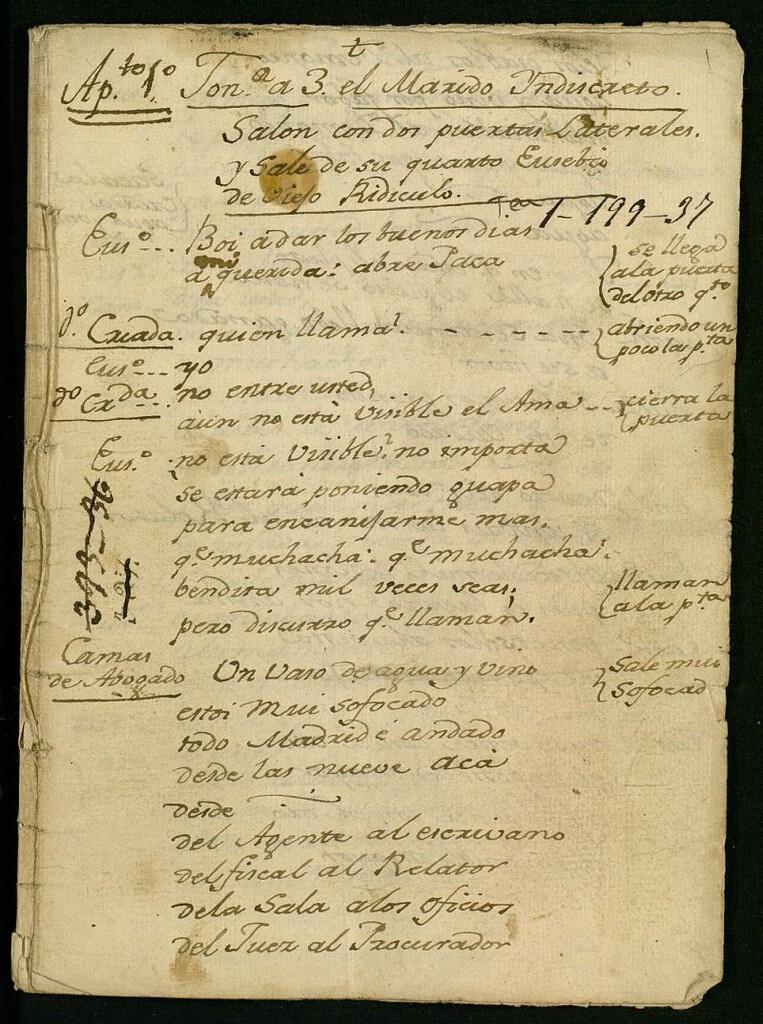 t
Ap.to 1.o Ton.a a 3. el Marido Yndiscreto.
Salon con dos puertas Laterales.
y Sale de su quarto Eusebio
de Viejo Ridiculo.
1-199-37
Eus.o... Boi a dar los buenos dias
a mi querida: abre Paca
se llega
a la puerta
del otro q.to
d.o Criada. quien llama?
abriendo un
poco la p.ta
Eus.o... yo
d.o Cr.da... no entre usted,
aun no està visible el Ama
cierra la
puerta
Eus.o no està Visible? no importa
se estarà poniendo guapa
para encanijarme mas.
q.e muchacha! q.e muchacha!
bendita mil veces seas;
pero discurro q.e llaman.
llaman
a la p.ta
393-36
Camas
de Abogado Un Vaso de agua y vino
Sale mui
Sofocad
estoi mui sofocado
todo Madrid è andado
desde las nueve acà
desde
del Agente al escrivano
del fiscal al Relator
dela Sala alos oficios
del Juez al Procurador